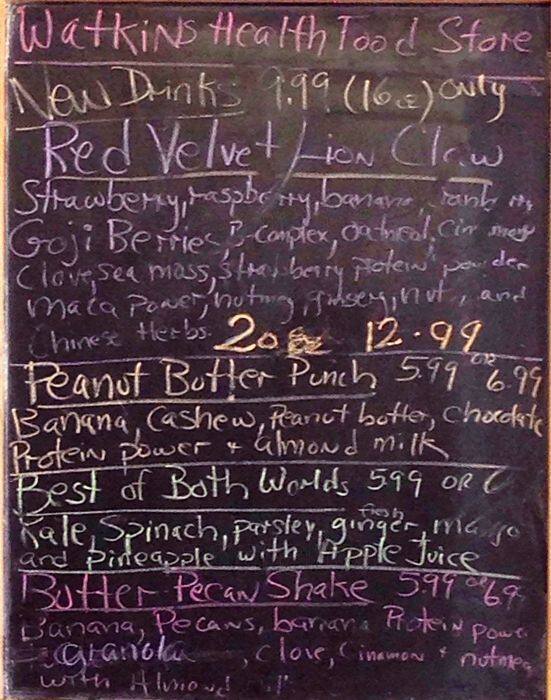 Watkins Health Food Store
New Drinks 9.99 (16oz) only
Red Velvet / Lion Claw
Strawberry, raspberry, banana,
Goji Berries, B-complex, oatmeal,
Clove, sea moss, strawberry protein powder
Maca Power, nutmeg, ginseng, nut, and
Chinese Herbs. 20oz 12.99
Peanut Butter Punch 5.99 or 6.99
Banana, Cashew, Peanut butter, Chocolate
Protein power + almond milk
Best of Both Worlds 5.99 OR
Kale, Spinach, parsley, fresh ginger, mango
and pineapple with Apple Juice
Butter Pecan Shake 5.99 or 6.9
Banana, Pecans, banana Protein power
granola, clove, Cinamon + nutmeg
with Almond